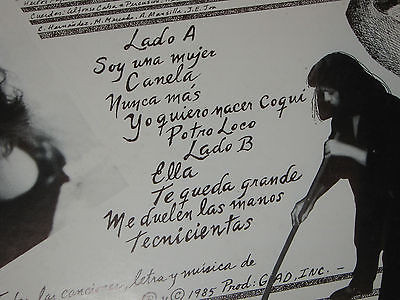 Cuerdas: Alfonso Cabrer
C. Hernández, M. Morcelo, A. Mansilla, J.E. Jon
Lado A
Soy una mujer
Canela
Nunca más
Yo quiero nacer Coqui
Potro Loco
Lado B
Ella
Te queda grande
Me duelen las manos
Tecnicientas
las canciones, letra y música de
© y ℗ 1985 Prod: GLAD, INC.